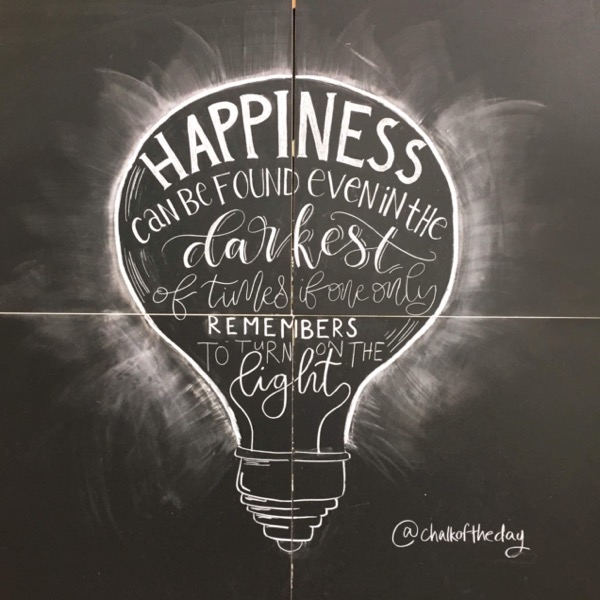 HAPPINESS
can BE FOUND EVEN IN tHE
darkest
of times if one only
REMEMBERS
TO TURN ON THE
light
@chalkoftheday